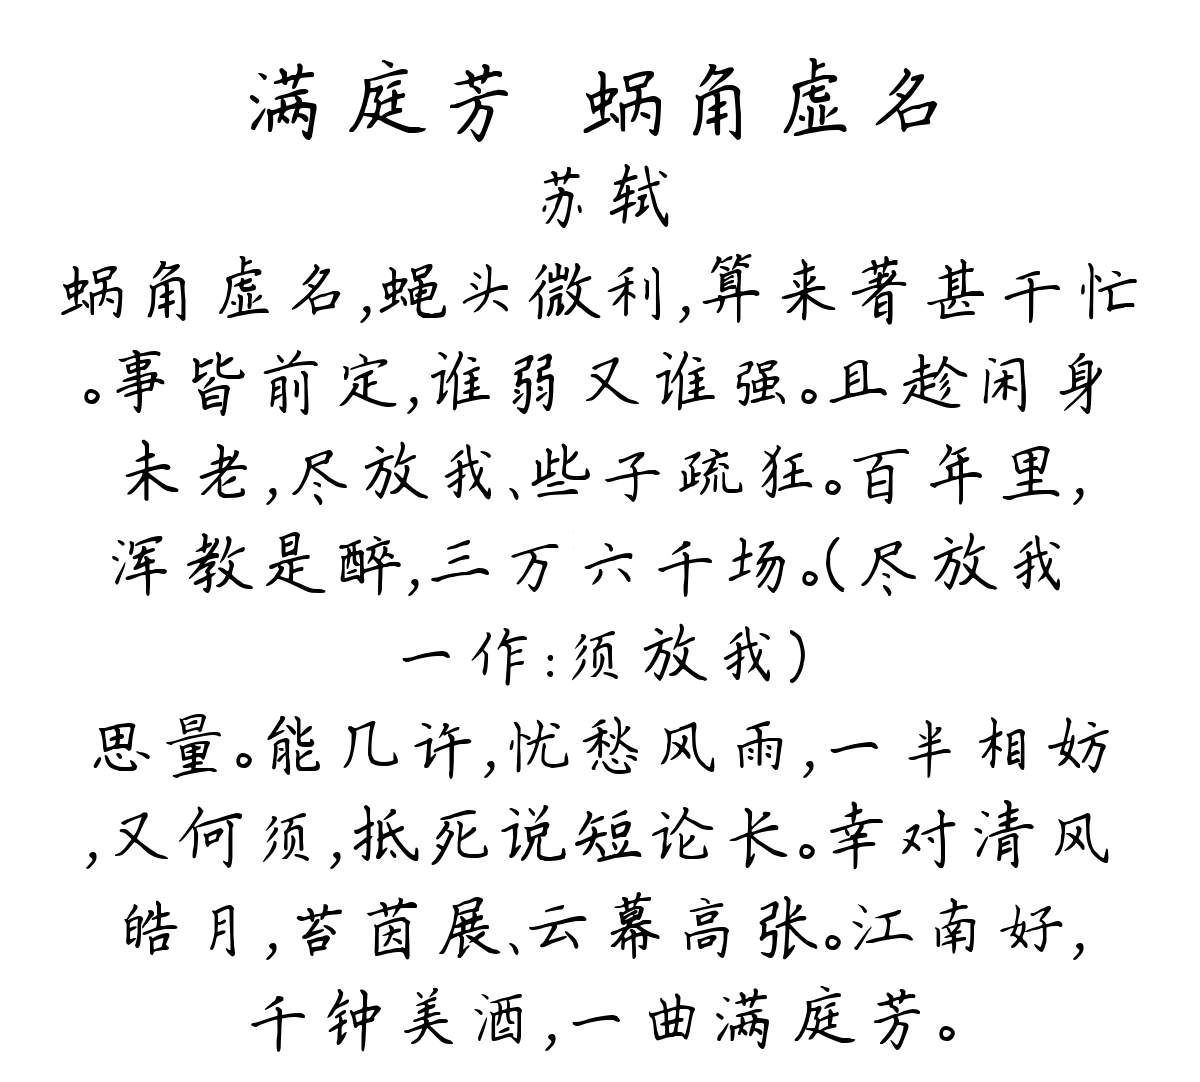 满庭芳 蜗角虚名
苏轼
蜗角虚名,蝇头微利,算来著甚干忙
。事皆前定,谁弱又谁强。且趁闲身
未老,尽放我、些子疏狂。百年里,
浑教是醉,三万六千场。(尽放我
一作:须放我)
思量。能几许,忧愁风雨,一半相妨
,又何须,抵死说短论长。幸对清风
皓月,苔茵展、云幕高张。江南好,
千钟美酒,一曲满庭芳。